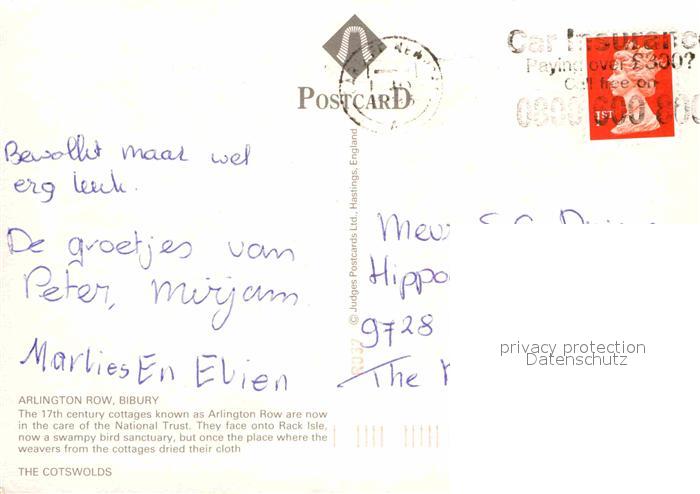 POSTCARD
Car Insuranc
Paying over £300?
Call free on
0800 000 800
1ST
Bewolkt maar wel
erg leuk.
De groetjes van
Peter, Mirjam
Marlies En Elien
© Judges Postcards Ltd., Hastings, England
Mevr
Hippo
9728
The
privacy protection
Datenschutz
ARLINGTON ROW, BIBURY
The 17th century cottages known as Arlington Row are now
in the care of the National Trust. They face onto Rack Isle,
now a swampy bird sanctuary, but once the place where the
weavers from the cottages dried their cloth
THE COTSWOLDS